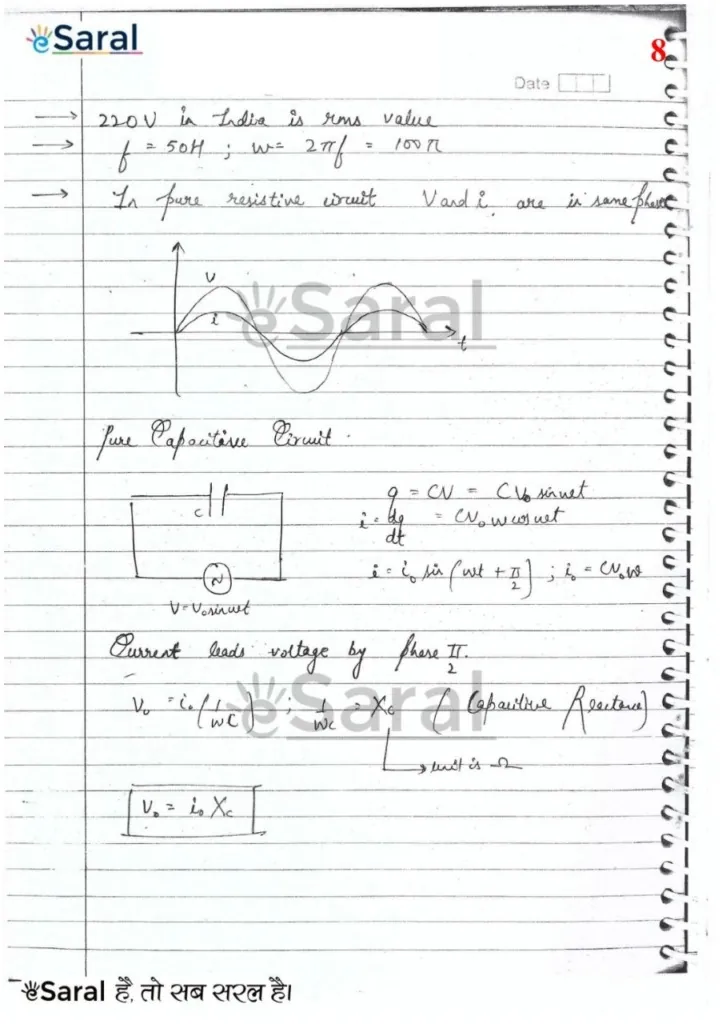 eSaral
8
Date
→ 220V in India is rms value
→ f = 50H ; w = 2πf = 100π
→ In pure resistive circuit V and i, are in same phase
V
i
t
eSaral
Pure Capacitive Circuit.
C
q = CV = CV₀ sinwt
i = dq/dt = CV₀ w coswt
i = i₀ sin (wt + π/2) ; i₀ = CV₀w
V = V₀sinwt
Current leads voltage by phase π/2.
V₀ = i₀ (1/wC) ; 1/wc = Xc (Capacitive Reactance)
eSaral
→ unit is Ω
V₀ = i₀ Xc
eSaral है, तो सब सरल है।